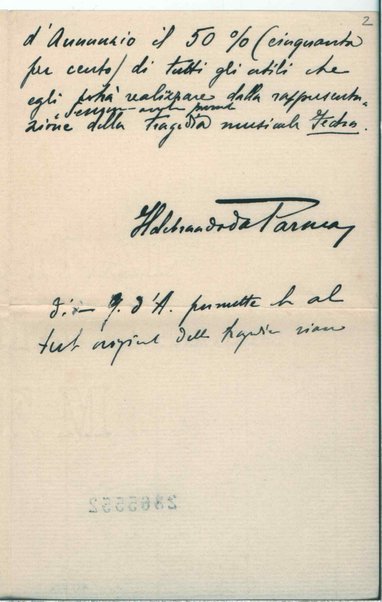 2
d'Annunzio il 50% (cinquanta
per cento) di tutti gli utili che
egli potrà realizzare dalla rappresenta-
zione della tragedia musicale Fedra.
Ildebrando da Parma
G. d'A. permette al
della tragedia
2865552